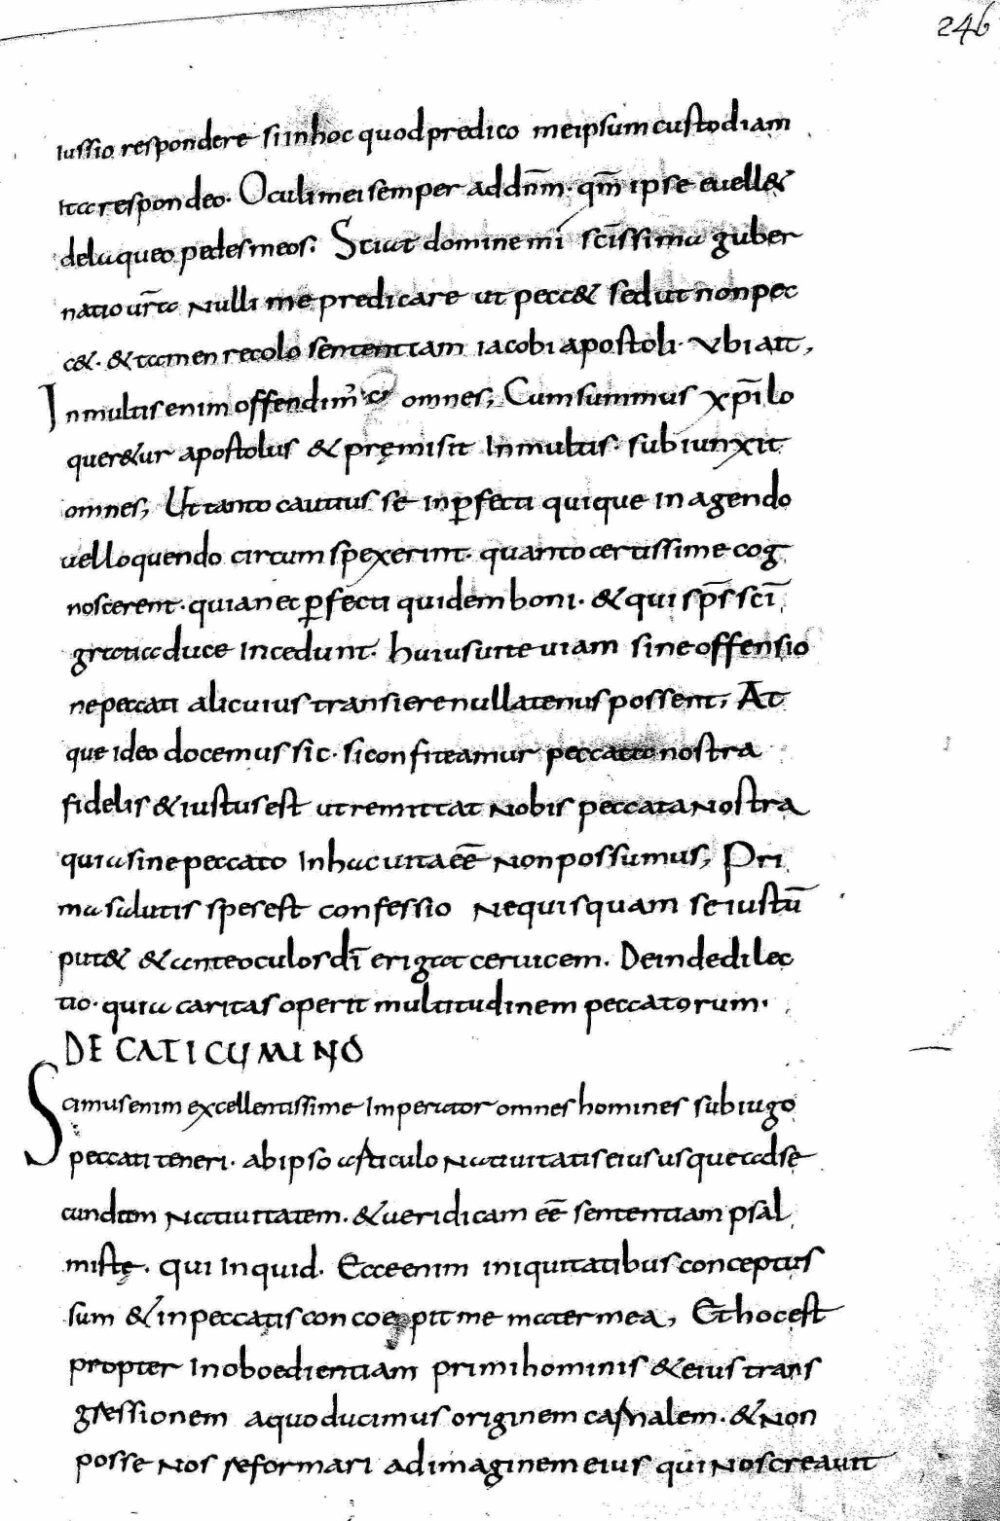 246
iussio respondere si in hoc quod predico meipsum custodiam
ita respondeo. Oculi mei semper ad dn̄m. qm̄ ipse euell&
de laqueo pedes meos: Sciat domine mi sc̄issima guber
natio ur̄a nulli me predicare ut pecc& sed ut non pec
c&. & tamen recolo sententiam iacobi apostoli. ubi ait,
In multis enim offendim' omnes; Cum summus xp̄i lo
quer&ur apostolus & pręmisit In multis. subiunxit
omnes; Ut tanto cautius se inp̱fecti quique in agendo
uel loquendo circumspexerint. quanto certissime cog
noscerent. quia nec p̱fecti quidem boni. & qui sp̄s sc̄i
gratia duce incedunt. huius uite uiam sine offensio
ne peccati alicuius transiere nullatenus possent; At
que ideo docemus sic. si confiteamur peccata nostra
fidelis & iustus est ut remittat nobis peccata nostra
quia sine peccato In hac uita eē non possumus; Pri
ma salutis spes est confessio ne quisquam se iustū
put& & ante oculos dī erigat ceruicem. Deinde dilec
tio. quia caritas operit multitudinem peccatorum.
DE CATICUMINO
Scimus enim excellentissime Imperator omnes homines sub iugo
peccati teneri. ab ipso articulo natiuitatis eius usque ad se
cundam natiuitatem. & ueridicam eē sententiam psal
mistę. qui Inquid. Ecce enim iniquitatibus conceptus
sum & in peccatis concoepit me mater mea; Et hoc est
propter Inoboedientiam primi hominis & eius trans
gressionem a quo ducimus originem carnalem. & non
posse nos reformari ad imaginem eius qui nos creauit